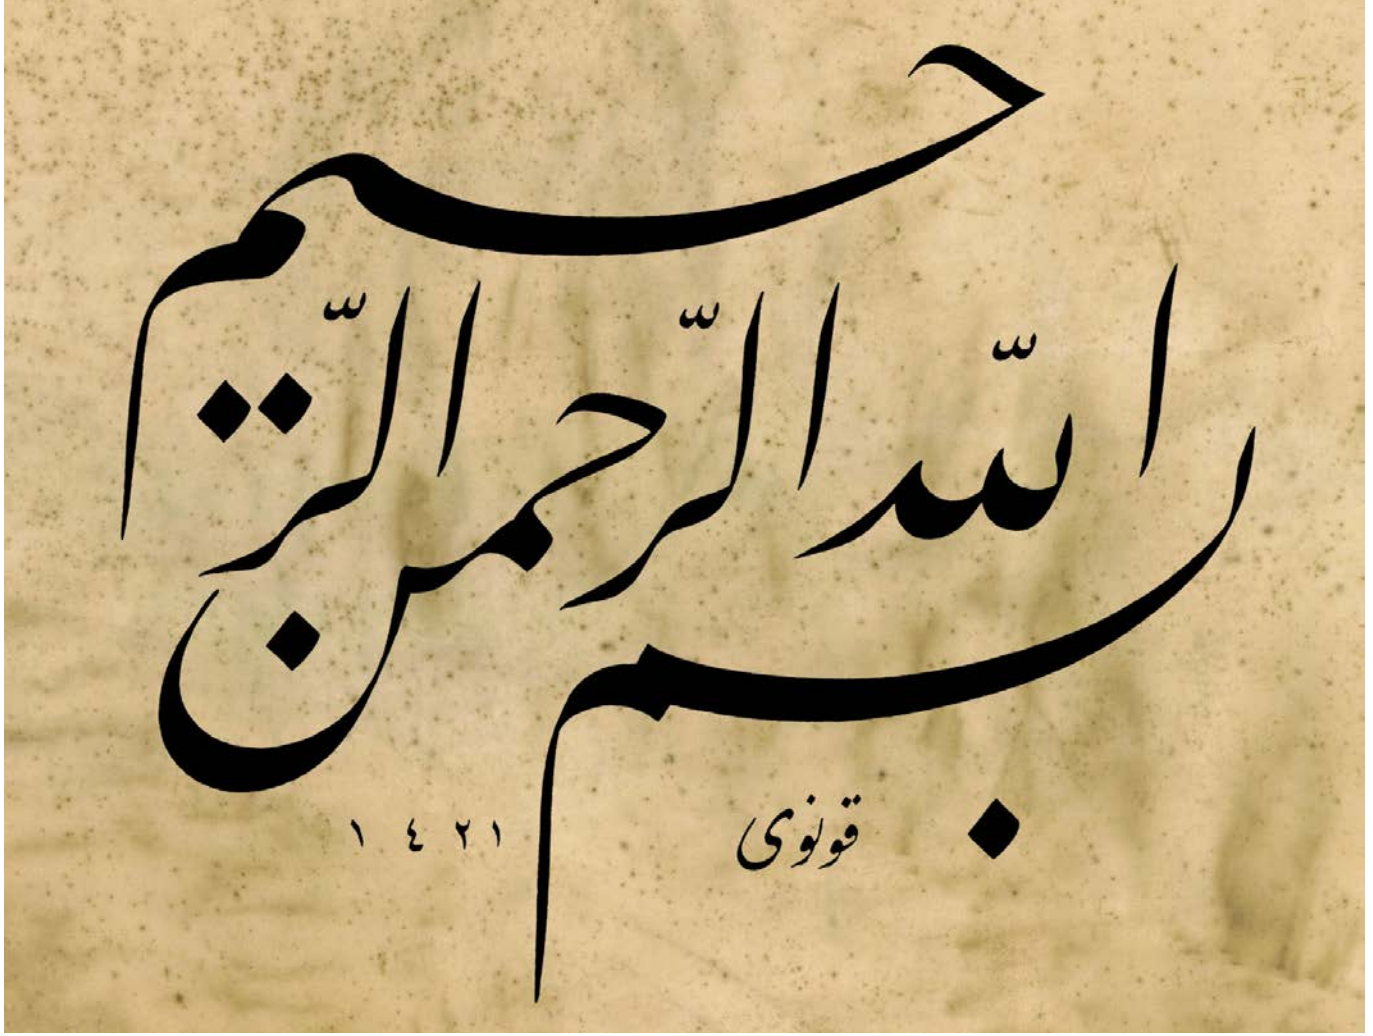 بسم الله الرّحمن الرّحيم
قونوی ١٤٢١